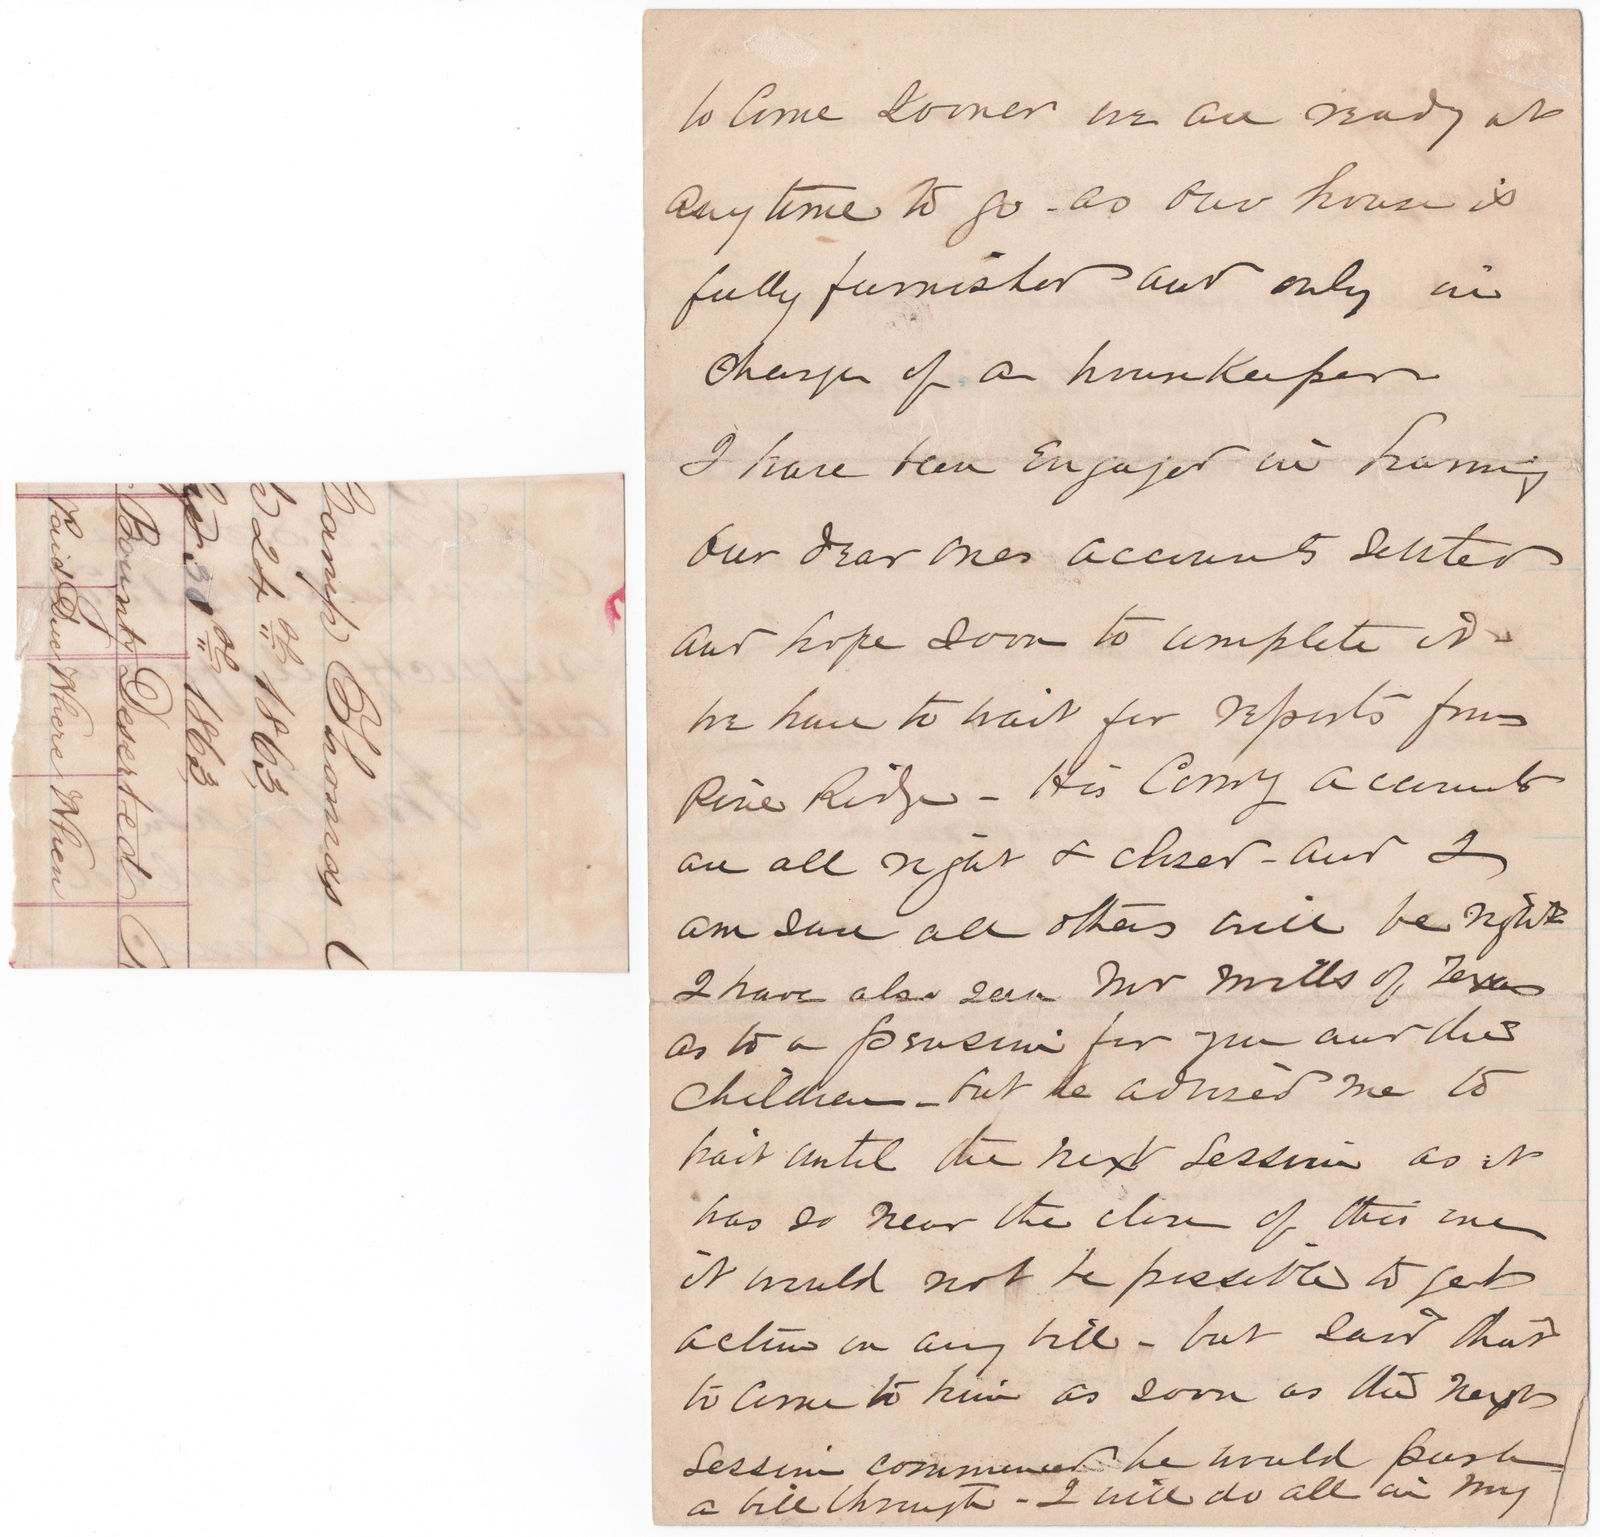 Camp Thomas
24th 1863
30th 1863
Bounty Deserted
Paid Due Where When
to come sooner we are ready at
any time to go - as our house is
fully furnished and only in
charge of a housekeeper
I have been engaged in having
our dear ones accounts settled
and hope soon to complete it -
we have to wait for reports from
Pine Ridge - His Comsy accounts
are all right & closed - and I
am sure all others will be right
I have also seen Mr Mills of Texas
as to a pension for you and the
children - but he advised me to
wait until the next session as it
was so near the close of this one
it would not be possible to get
action on any bill - but said that
to come to him as soon as the next
session commenced he would push
a bill through - I will do all in my